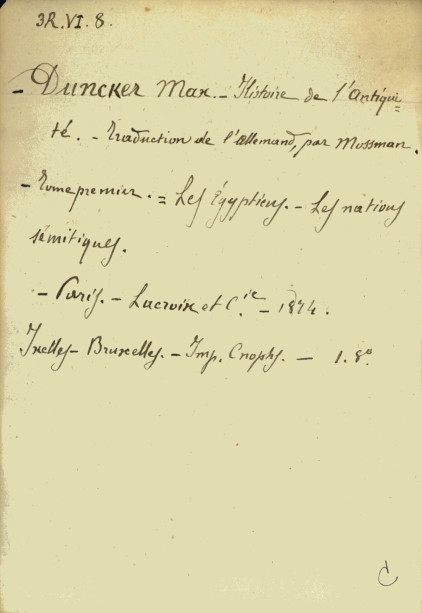 3R.VI.8.
- Duncker Max. - Histoire de l'Antiqui=
té. - Traduction de l'allemand, par Mossman.
- Tome premier. = Les Égyptiens. - Les nations
sémitiques.
- Paris. - Lacroix et C.ie - 1874.
Ixelles - Bruxelles. - Imp. Cnophs. - 1. 8º.
C